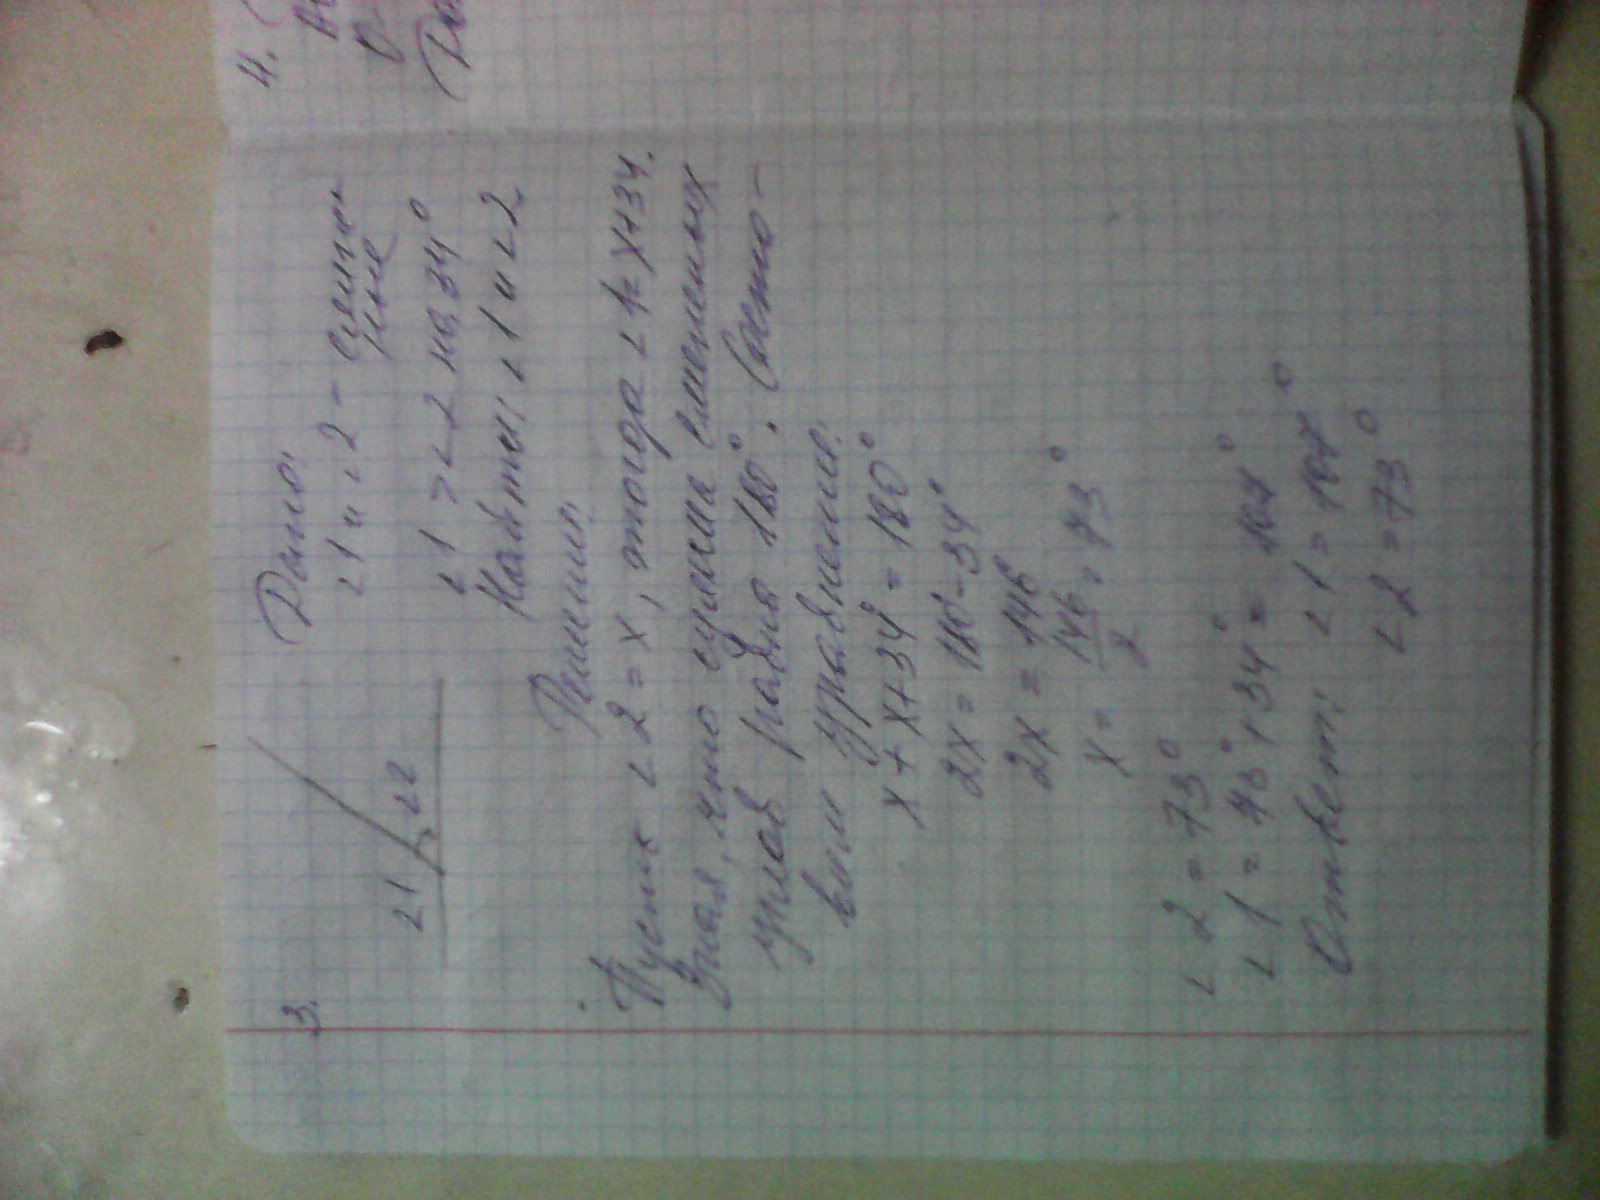 3.
∠1 ∠2
Дано:
∠1 и ∠2 - смеж
ные
∠1 > ∠2 на 34°
Найти: ∠1 и ∠2
Решение:
Пусть ∠2 = x, тогда ∠1 = x+34.
Зная, что сумма смежных
углов равна 180°. Соста-
вим уравнение:
x + x+34° = 180°
2x = 180°-34°
2x = 146
x = 146/2 = 73°
∠2 = 73°
∠1 = 73°+34° = 107°
Ответ: ∠1 = 107°
∠2 = 73°
4.